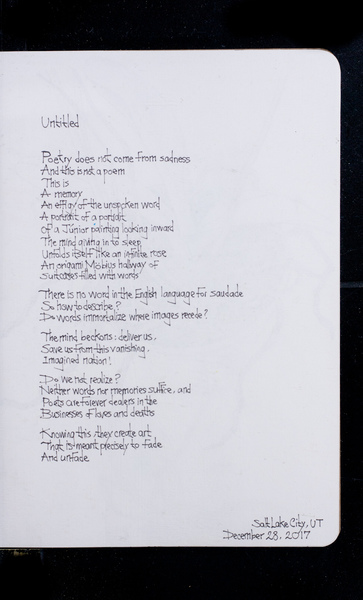 Untitled
Poetry does not come from sadness
And this is not a poem
This is
A memory
An effigy of the unspoken word
A portrait of a portrait
Of a Júnior painting looking inward
The mind giving in to sleep
Unfolds itself like an infinite rose
An origami Möbius hallway of
Suitcases filled with words
There is no word in the English language for saudade
So how to describe?
Do words immortalize where images recede?
The mind beckons: deliver us,
Save us from this vanishing,
Imagined nation!
Do we not realize?
Neither words nor memories suffice, and
Poets are forever dealers in the
Businesses of loves and deaths
Knowing this, they create art
That is meant precisely to fade
And unfade
Salt Lake City, UT
December 28, 2017